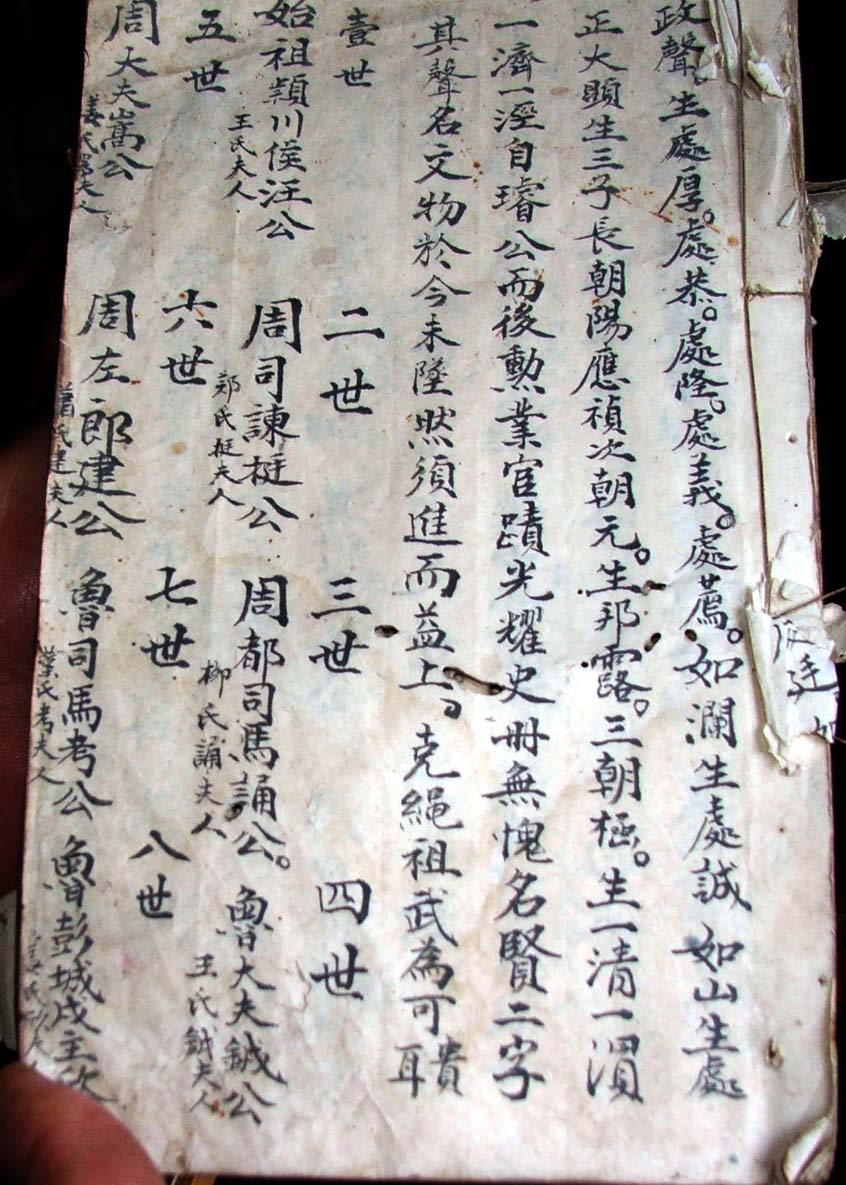 政聲。生處厚。處恭。處隆。處義。處薦。如瀾生處誠如山生處
正大顕生三子長朝陽應禎次朝元。生邦露。三朝極。生一清一濵
一濟一溼自璿公而後勲業宦蹟光耀史册無愧名賢二字
其聲名文物於今未墜然須進而益上。克繩祖武為可貴耳
壹世
二世
三世
四世
始祖頴川侯汪公
王氏夫人
周司諫挺公
郑氏挺夫人
周都司馬誦公。
柳氏誦夫人
魯大夫鉞公
王氏鉞夫人
五世
六世
七世
八世
周大夫嵩公
姜氏嵩夫人
周左郎建公
氏建夫人
魯司馬考公
葉氏考夫人
魯彭城戍主